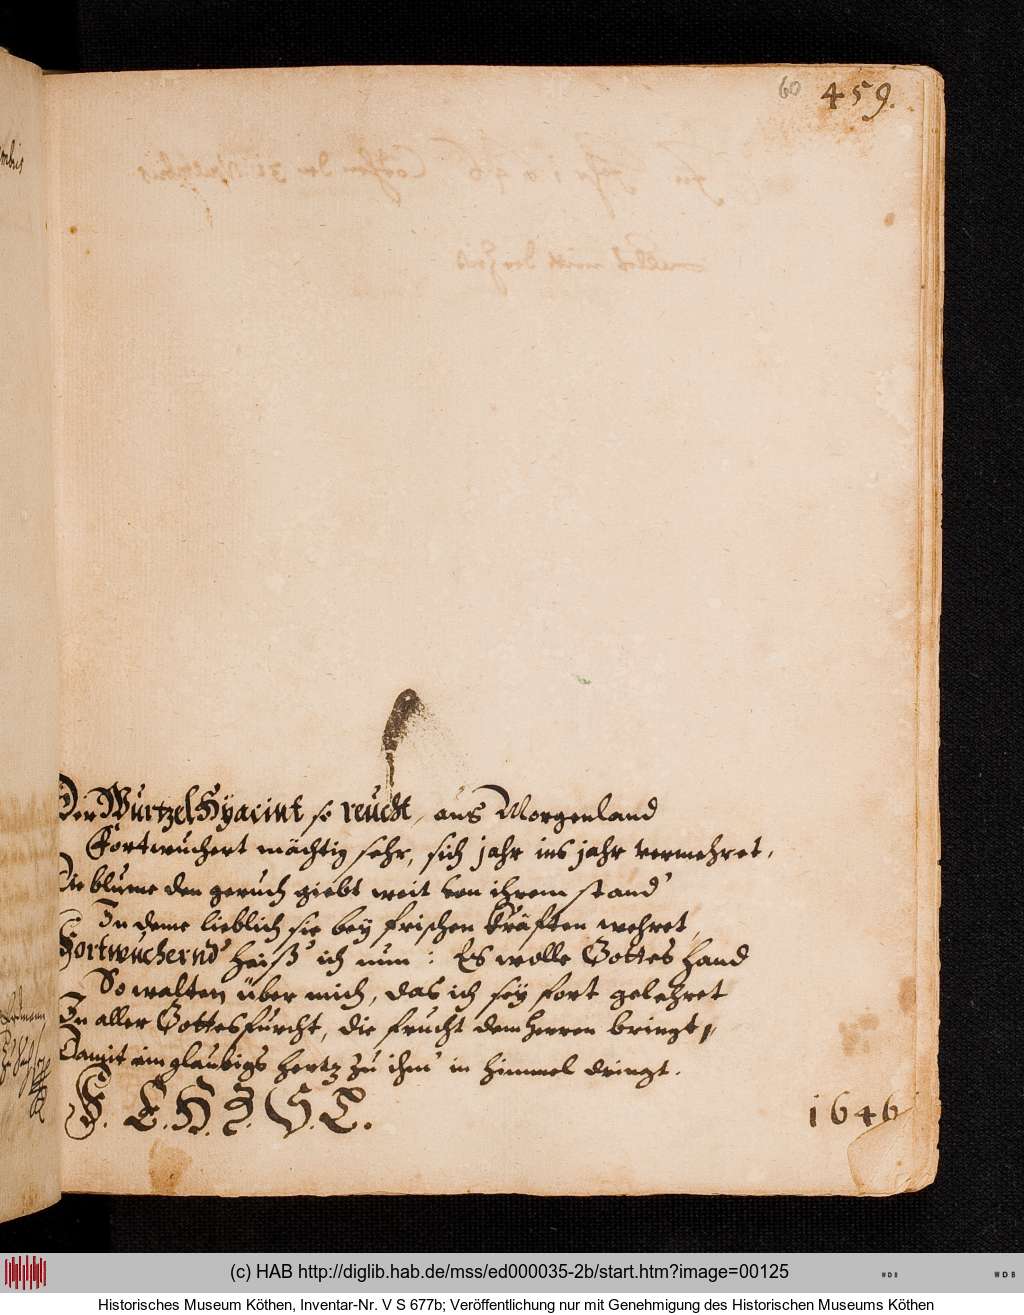 60 459.
Der Wurtzel Hÿacint so reucht, aus Morgenland
Fortwuchert mächtig sehr, sich jahr ins jahr vermehret,
Die blume den geruch giebt weit von ihrem stand
In deme lieblich sie beÿ frischen kräften wehret,
Fortwuchernd heiß ich nun: Es wolle Gottes Hand
So walten über mich, das ich seÿ fort gelehret
In aller Gottesfurcht, die frucht dem Herren bringt,
Damit ein glaubigs hertz zu ihm in himmel dringt.
F. E. H. Z. S. C.
1646
(c) HAB http://diglib.hab.de/mss/ed000035-2b/start.htm?image=00125
WDB
WDB
Historisches Museum Köthen, Inventar-Nr. V S 677b; Veröffentlichung nur mit Genehmigung des Historischen Museums Köthen